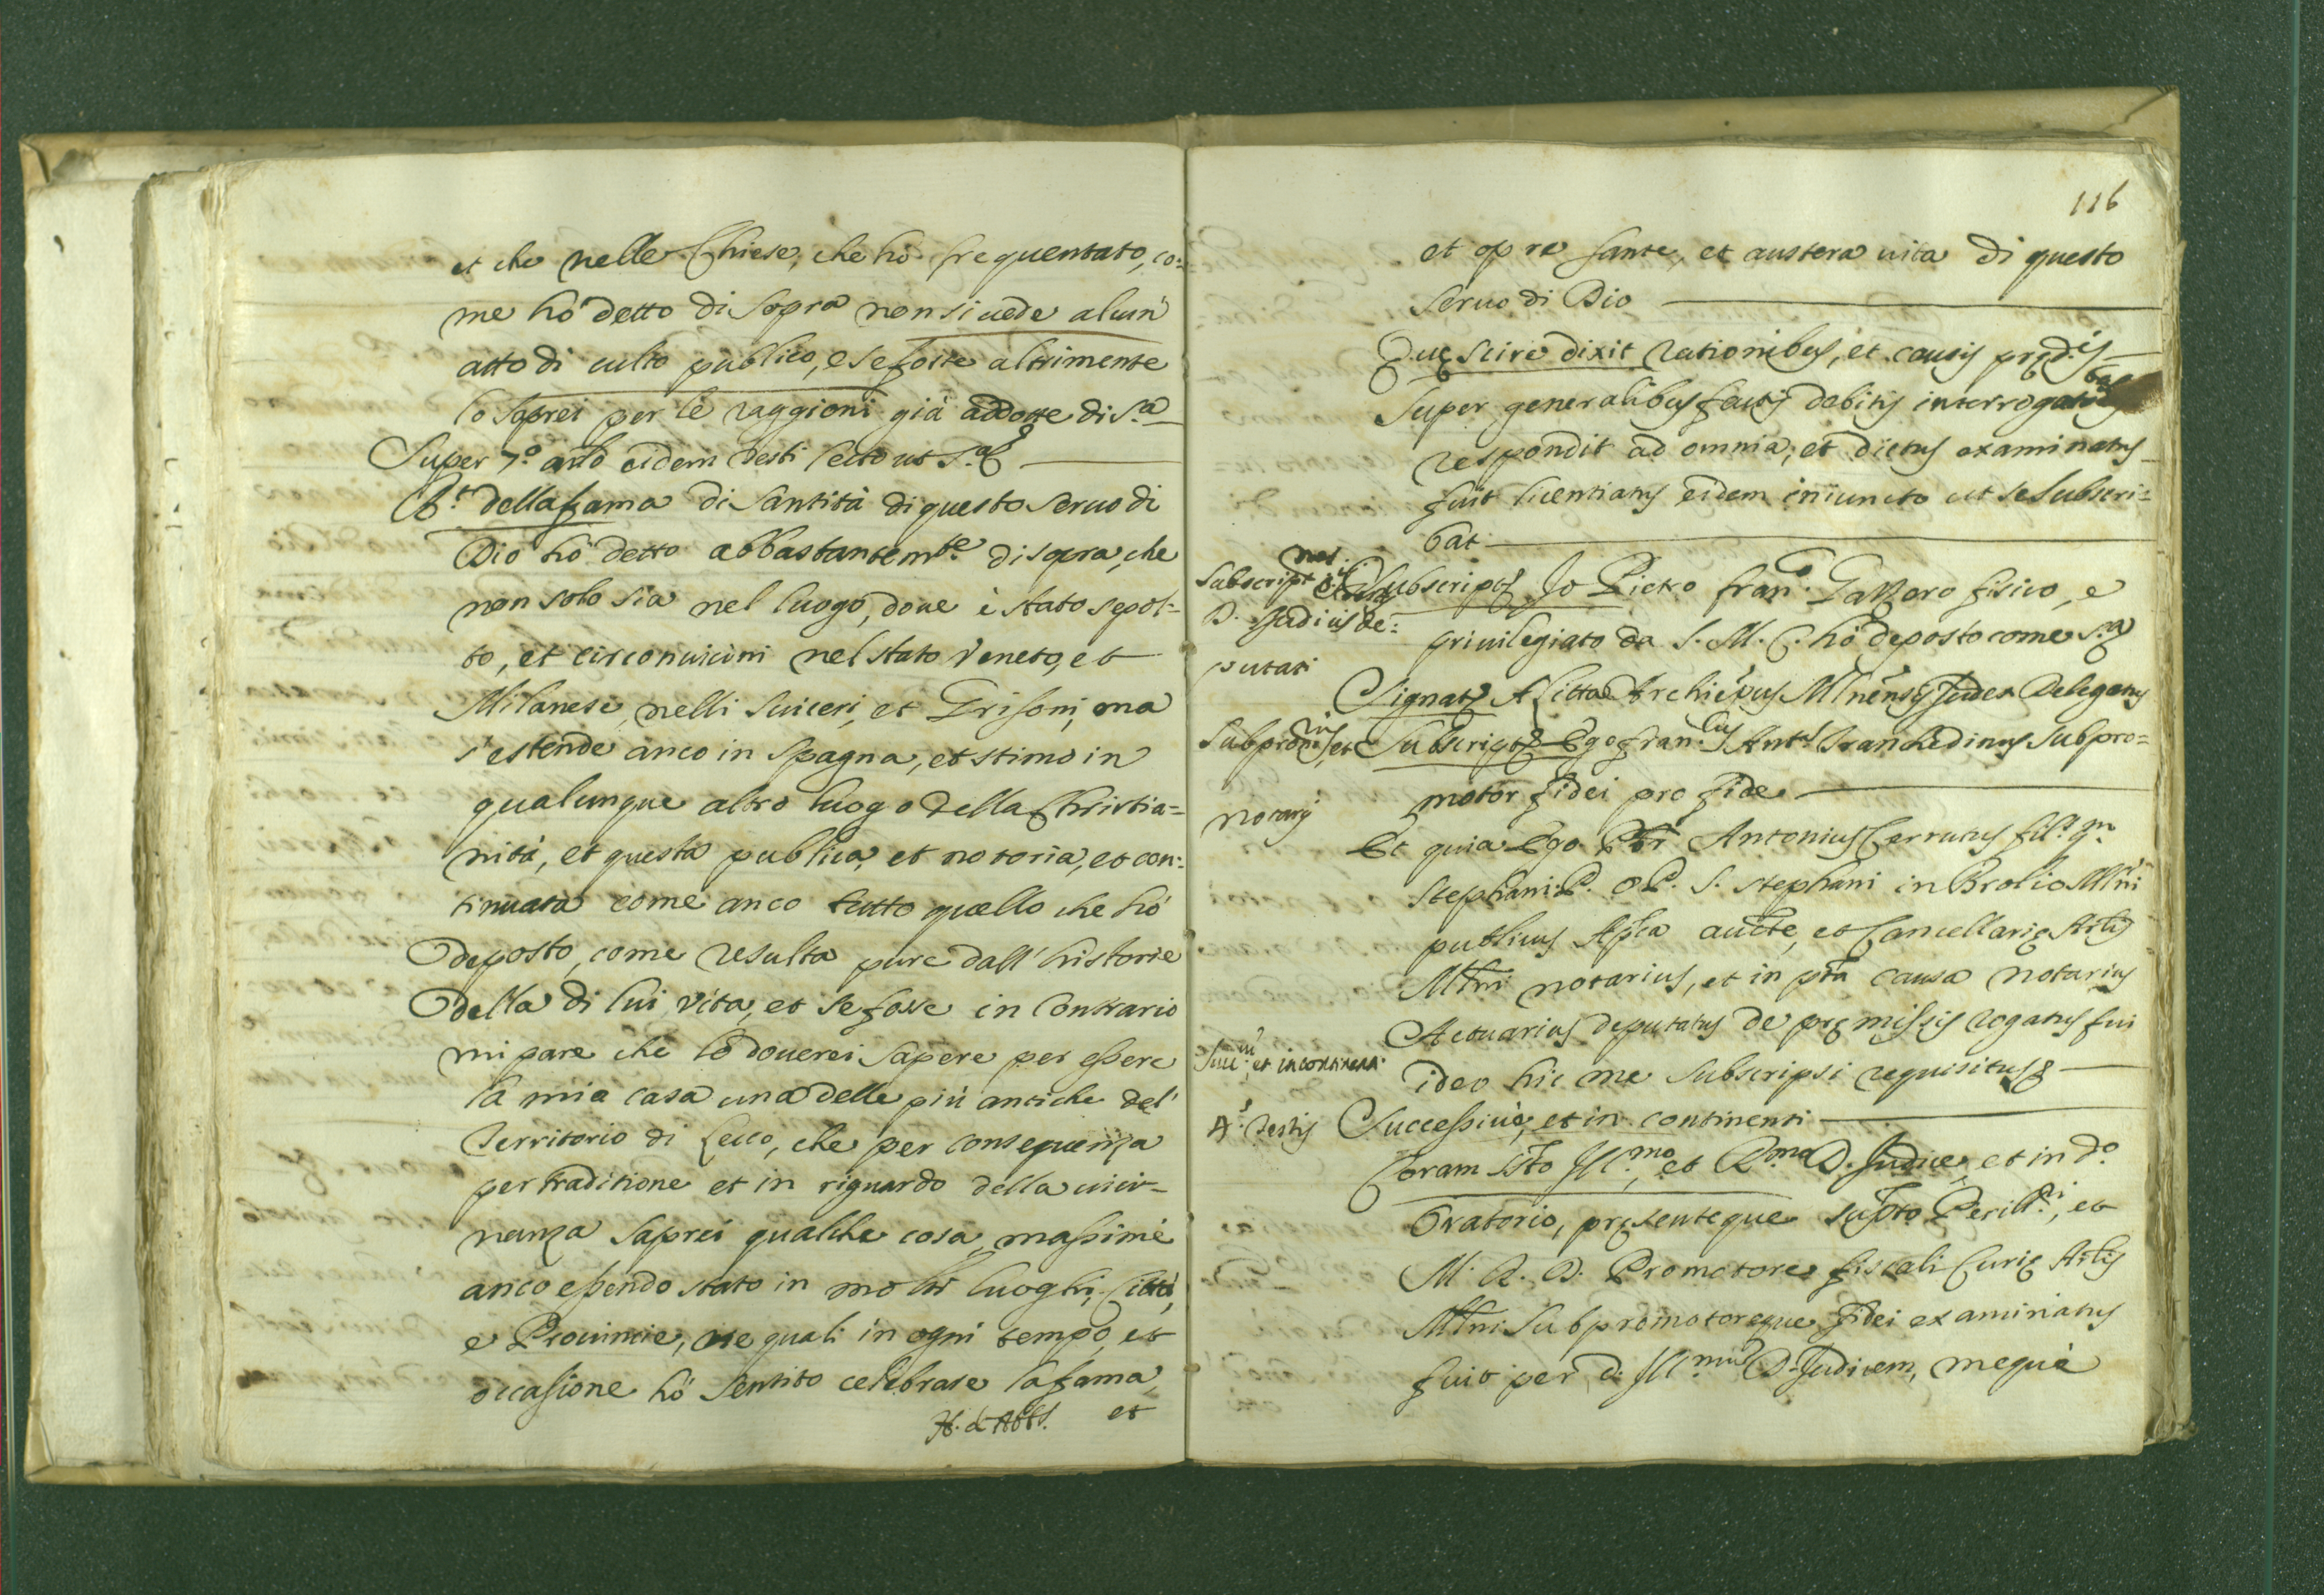 et che nelle Chiese, che hò frequentato, co-
me hò detto di sopra non si uede alcun
atto di culto publico, e se fosse altrimente
lo saprei per le raggioni già addotte di s.ª
Super 7.º artᵒ eidem testi lecto ut s.ª
R.t della fama di Santità di questo seruo di
Dio hò detto abbastantem.te di sopra, che
non solo sia nel luogo, doue è stato sepol-
to, et circonuicini nel stato Veneto, et
Milanese, nelli Suiceri, et Grisoni, ma
s'estende anco in Spagna, et stimo in
qualunque altro luogo della Christia=
nità, et questa publica, et notoria, et con=
tinuata come anco tutto quello che hò
deposto, come resulta pure dall'historie
della di lui vita, et se fosse in contrario
mi pare che lo douerei sapere per essere
la mia casa una delle più antiche del'
Territorio di Lecco, che per consequenza
per traditione et in riguardo della uici-
nanza saprei qualche cosa, massimè
anco essendo stato in molti luoghi, Città,
e Prouincie, ne quali in ogni tempo, et
occasione hò sentito celebrare la fama
et
116
et opre sante, et austera uita di questo
seruo di Dio
Quę scire dixit rationibus, et causis pręd.is
Super generalibus factis debitis interrogationibus
respondit ad omnia, et dictus examinatus
fuit licentiatus eidem iniuncto ut se subscri=
bat
Subscript.
D. Judicis de=
putati
Subscript. Io Pietro Fran.º Gazzero fisico, e
priuilegiato da S. M. C. hò deposto come s.ª
Signat. A Citta Archiep̃us Ml̃nensis Judex Delegatus
Subprom.ris, et
notarij
Subscript. Ego Fran.cus Ant.s Tranchedinus Subpro=
motor fidei pro fide
Et quia Ego Pbr̃ Antonius Cerrutus fil. q.m
Stephani P. O P. S. Stephani in Brolio Ml̃ni
publicus Ap̃lica aucte, et Cancellarię Arlis
Ml̃ni notarius, et in pñti causa notarius
Actuarius deputatus de pręmissis rogatus fui
ideo hic me subscripsi requisitus
Succ.e, et incontinen.
A. testis
Successiuè, et in continenti
Coram s͂to Ill.mo, et R.mo D. Judice, et in d.º
Oratorio, pręsenteque sup͂to Perill.ri, et
M. R. D. Promotore fiscali Curię Arlis
Ml̃ni Subpromotoreque fidei examinatus
fuit per d. Ill.mum D. Judicem, mequè